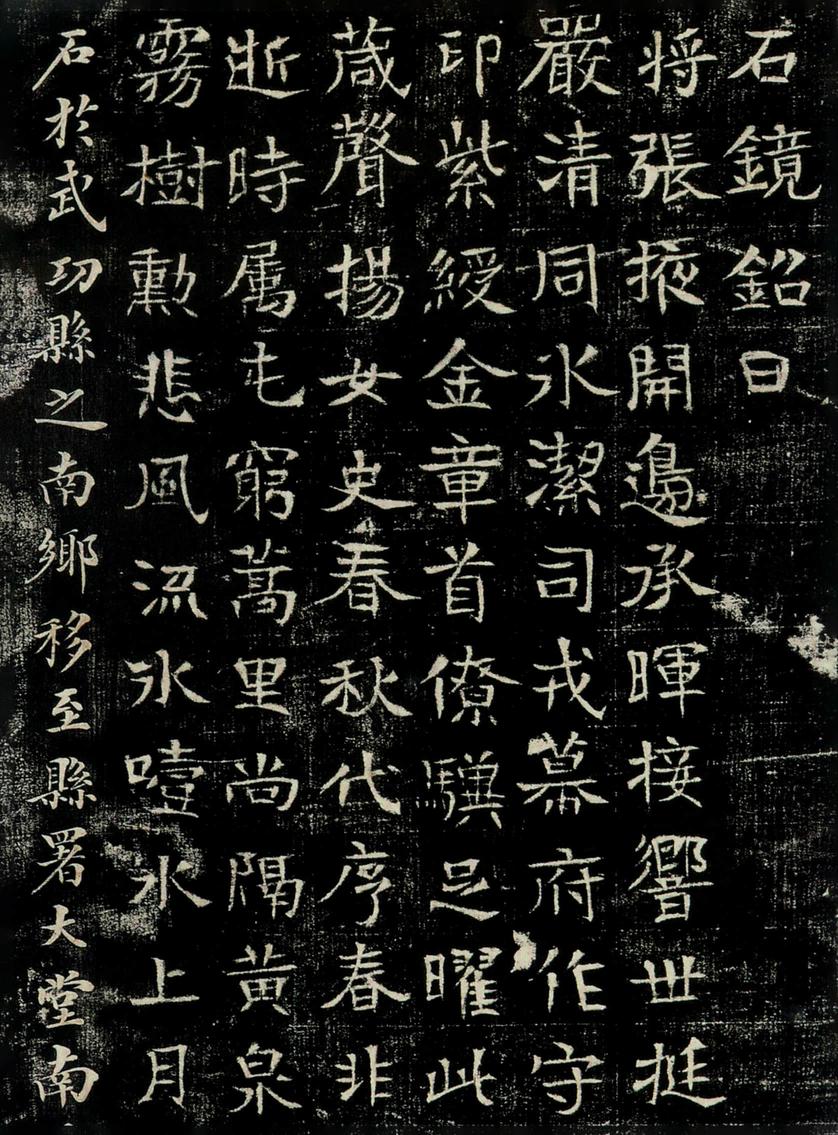 石鏡銘曰
將張掖開邊承暉接響世挺
嚴清同水潔司戎幕府作守
印紫綬金章首僚驥足曜此
蒇聲揚女史春秋代序春非
逝時属屯窮蒿里尚隔黃泉
霧樹勳悲風流水噎水上月
石於武功縣之南鄉移至縣署大堂南